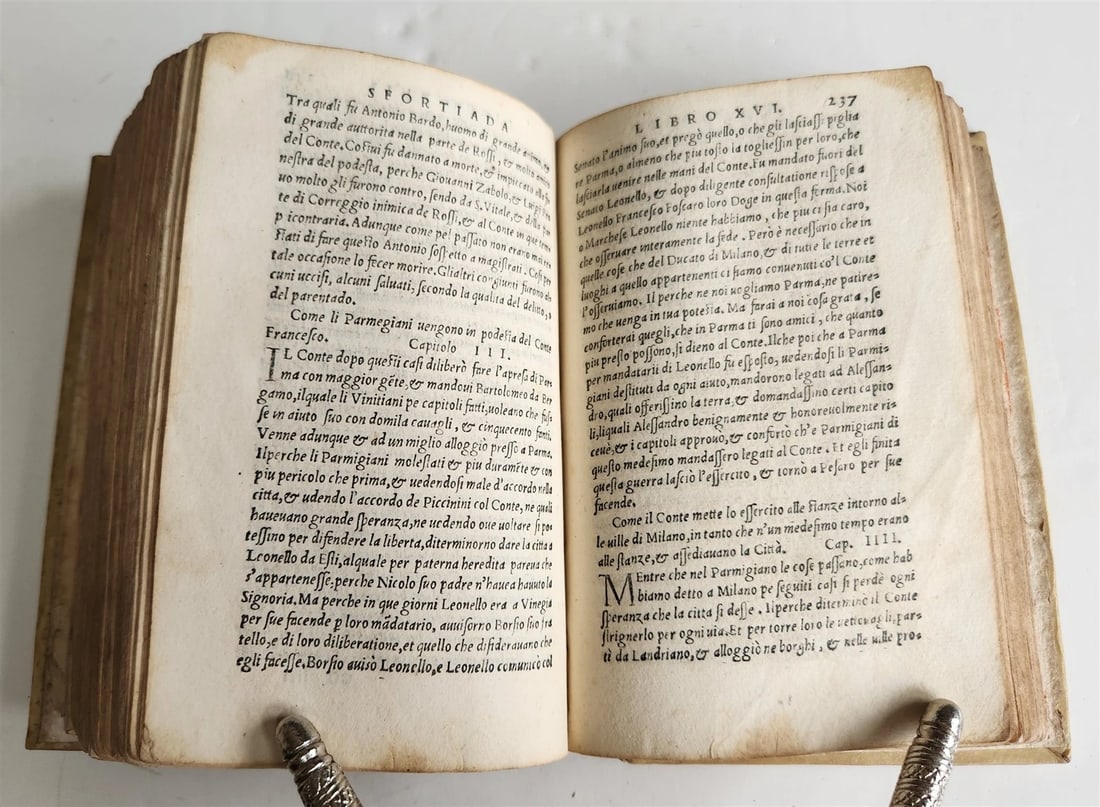 SFORTIADA
Tra quali fu Antonio Bardo, huomo di grande animo, et
di grande auttorita nella parte de Rossi, & molto amico
del Conte. Costui fu dannato a morte, & impiccato alla fe
nestra del podesta, perche Giovanni Zabolo, & Luigi
uo molto gli furono contro, sendo da S. Vitale, & dalla
te di Correggio inimica de Rossi, & al Conte in que tempi
p icontraria. Adunque come pel passato non erano mai
stati di fare questo Antonio sospetto a magistrati. Cosi per
tale occasione lo fecer morire. Gli altri congiunti furono al
cuni uccisi, alcuni saluati, secondo la qualita del delitto, o
del parentado.
Come li Parmegiani uengono in podestà del Conte
Francesco. Capitolo III.
IL Conte dopo questi casi diliberò fare l'apresa di Par
ma con maggior gẽte, & mandoui Bartolomeo da Ber
gamo, ilquale li Vinitiani pe capitoli fatti, uoleano che fus
se in aiuto suo con domila cauagli, & cinquecento fanti.
Venne adunque & ad un miglio alloggiò presso a Parma.
Ilperche li Parmigiani molestati & piu duramẽte & con
piu pericolo che prima, & uedendosi male d'accordo nella
citta, & udendo l'accordo de Piccinini col Conte, ne quali
haueuano grande speranza, ne uedendo oue uoltare si po
tessino per difendere la liberta, diterminorno dare la citta a
Leonello da Esti, alquale per paterna heredita pareua che
s'appartenesse: perche Nicolo suo padre n'hauea hauuto la
Signoria. Ma perche in que giorni Leonello era a Vinegia
per sue facende p loro mãdatario, auuisorno Borsio suo fra
tello, e di loro diliberatione, et quello che disiderauano che
egli facesse. Borsio auisò Leonello, e Leonello comunicò col
LIBRO XVI. 237
Senato l'animo suo, et pregò quello, o che gli lasciassi piglia
re Parma, o almeno che piu tosto la togliessin per loro, che
lasciarla uenire nelle mani del Conte. Fu mandato fuori del
Senato Leonello, & dopo diligente consultatione rispose a
Leonello Francesco Foscaro loro Doge in questa forma. Noi
o Marchese Leonello niente habbiamo, che piu ci sia caro,
che osseruare interamente la fede. Però è necessario che in
quelle cose che del Ducato di Milano, & di tutte le terre et
luoghi a quello appartenenti ci siamo conuenuti co'l Conte
l'osseruiamo. Il perche ne noi uogliamo Parma, ne patire=
mo che uenga in tua potestà. Ma farai a noi cosa grata, se
conforterai quegli, che in Parma ti sono amici, che quanto
piu presto possono, si dieno al Conte. Ilche poi che a Parma
per mandatarii di Leonello fu esposto, uedendosi li Parmi=
giani destituti da ogni aiuto, mandorono legati ad Alessan=
dro, quali offerissino la terra, & domandassino certi capito
li, liquali Alessandro benignamente & honoreuolmente ri=
ceuè, & i capitoli approuo, & confortò ch'e Parmigiani di
questo medesimo mandassero legati al Conte. Et egli finita
questa guerra lasciò l'essercito, & tornò a Pesaro per sue
facende.
Come il Conte mette lo essercito alle stanze intorno al=
le uille di Milano, in tanto che n'un medesimo tempo erano
alle stanze, & assediauano la Città. Cap. IIII.
MEntre che nel Parmigiano le cose passano, come hab
biamo detto a Milano pe seguiti casi si perdè ogni
speranza che la citta si desse. Ilperche diterminò il Conte
strignerlo per ogni uia. Et per torre loro le uettouagli, pars=
ti da Landriano, & alloggiò ne borghi, & nelle uille pros=